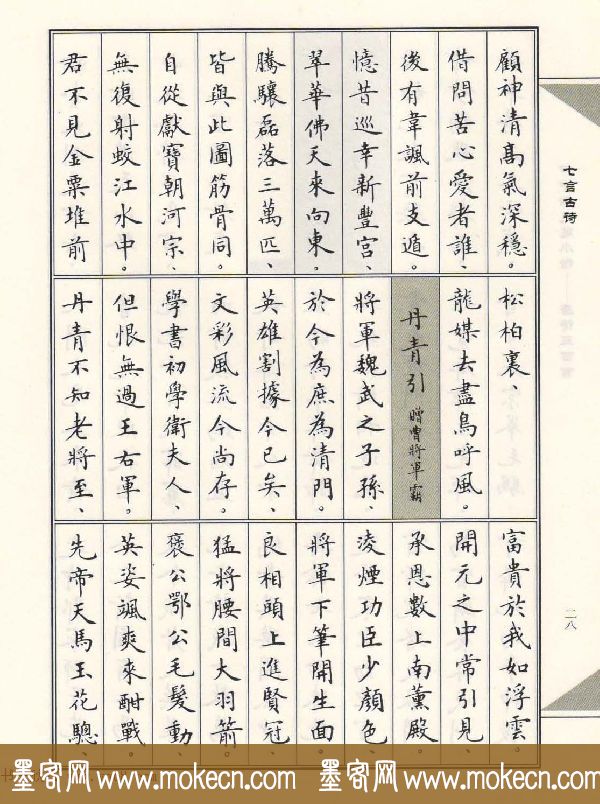 七言古詩
二八
顧神清高氣深穩。
借問苦心愛者誰、
後有韋諷前支遁。
憶昔巡幸新豐宮、
翠華拂天來向東。
騰驤磊落三萬匹、
皆與此圖筋骨同。
自從獻寶朝河宗、
無復射蛟江水中。
君不見金粟堆前
松柏裏、
龍媒去盡鳥呼風。
丹青引 贈曹將軍霸
將軍魏武之子孫、
於今為庶為清門。
英雄割據今已矣、
文彩風流今尚存。
學書初學衛夫人、
但恨無過王右軍。
丹青不知老將至、
富貴於我如浮雲。
開元之中常引見、
承恩數上南薰殿。
凌煙功臣少顏色、
將軍下筆開生面。
良相頭上進賢冠、
猛將腰間大羽箭。
褒公鄂公毛髮動、
英姿颯爽來酣戰。
先帝天馬玉花驄、
墨客网 www.mokecn.com 墨客网 www.mokecn.com